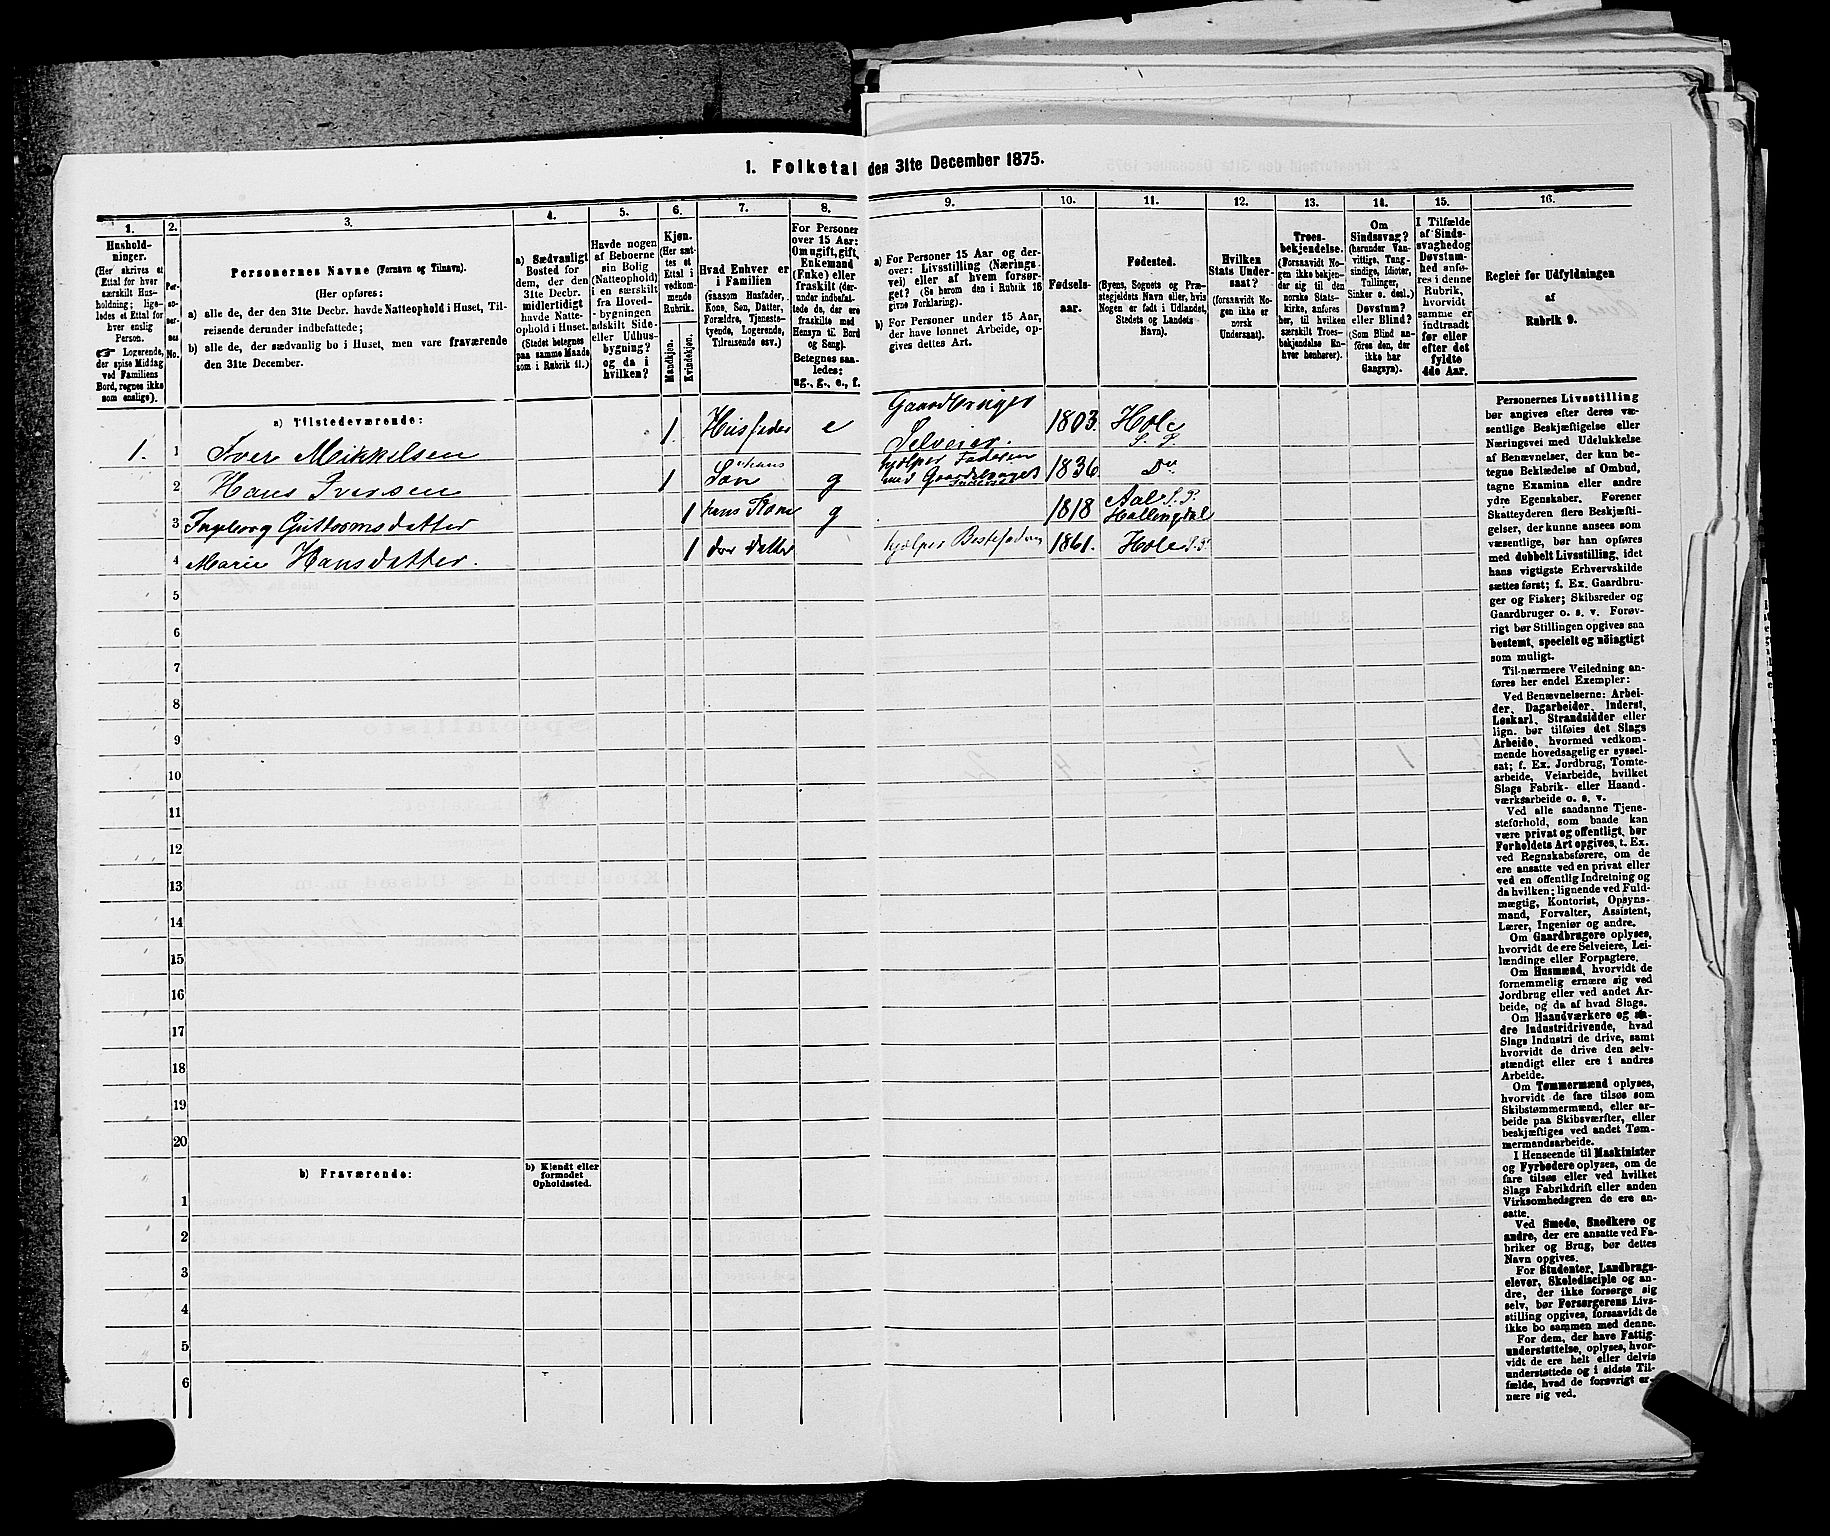 1. Folketal den 31te December 1875.
1.
Hushold-
ninger.
(Her skrives et
Ettal for hver
særskilt Hus-
holdning; lige-
ledes et Ettal for
hver enslig
Person.
Logerende,
der spise Middag
ved Familiens
Bord, regnes ikke
som enslige).
2.
Per-
so-
ner-
nes
No.
3.
Personernes Navne (Fornavn og Tilnavn).
(Her opføres:
a) alle de, der den 31te Decbr. havde Natteophold i Huset, Til-
reisende derunder indbefattede;
b) alle de, der sædvanlig bo i Huset, men vare fraværende
den 31te December.
4.
a) Sædvanligt
Bosted for
dem, der den
31te Decbr.
midlertidigt
havde Natte-
ophold i Huset.
(Stedet betegnes
paa samme Maade
som i Rubrik 11.)
5.
Havde nogen
af Beboerne
sin Bolig
(Natteophold)
i en særskilt
fra Hoved-
bygningen
adskilt Side-
eller Udhus-
bygning?
og da i
hvilken?
6.
Kjøn.
(Her sæt-
tes et
Ettal i
vedkom-
mende
Rubrik.
Mandkjøn.
Kvindekjøn.
7.
Hvad Enhver er
i Familien
(saasom Husfader,
Kone, Søn, Datter,
Forældre, Tjeneste-
tyende, Logerende,
Tilreisende osv.)
8.
For Personer
over 15 Aar:
Om ugift, gift,
Enkemand
(Enke) eller
fraskilt (der-
under indbefat-
tede de, der ere
fraskilte med
Hensyn til Bord
og Seng).
Betegnes saa-
ledes:
ug., g., e., f.
9.
a) For Personer 15 Aar og der-
over: Livsstilling (Nærings-
vei) eller af hvem forsør-
get? (Se herom den i Rubrik 16
givne Forklaring).
b) For Personer under 15 Aar,
der have lønnet Arbeide, op-
gives dettes Art.
10.
Fødsels-
aar.
11.
Fødested.
(Byens, Sognets og Præ-
stegjeldets Navn eller, hvis
Nogen er født i Udlandet,
Stedets og Landets
Navn).
12.
Hvilken
Stats Under-
saat?
(forsaavidt No-
gen ikke er
norsk
Undersaat).
13.
Troes-
bekjendelse.
(Forsaavidt No-
gen ikke bekjen-
der sig til den
norske Stats-
kirke, anføres
her, til hvilken
særskilt Troes-
bekjendelse En-
hver henhører).
14.
Om
Sindssvag?
(herunder Van-
vittige, Tung-
sindige, Idioter,
Tullinger,
Sinker o. desl.)
Døvstum?
eller Blind?
(Som Blind an-
føres den, der
ikke har
Gangsyn).
15.
I Tilfælde
af Sinds-
svaghed og
Døvstum-
hed anfø-
res i denne
Rubrik,
hvorvidt
samme er
indtraadt
før eller
efter det
fyldte
4de Aar.
16.
Regler for Udfyldningen
af
Rubrik 9.
a) Tilstedeværende:
1. 1 Iver Mikkelsen 1. Husfader e Gaardbruger Selveier. 1803. Hole S. P.
2 Hans Iversen 1 Søn hans g hjælper Faderen med Gaardsbruget 1836. Do
3 Ingeborg Guttormsdatter 1 hans Kone g 1818 Aal S. P. Hallingdal
4 Marie Hansdatter. 1 der Datter hjælper Bestefadren 1861. Hole S. P.
5
6
7
8
9
10
11
12
13
14
15
16
17
18
19
20
b) Fraværende:
b) Kjendt eller
formodet
Opholdssted.
1
2
3
4
5
6
Personernes Livsstilling
bør angives efter deres væ-
sentlige Beskjæftigelse eller
Næringsvei med Udelukkelse
af Benævnelser, der kun be-
tegne Beklædelse af Ombud,
tagne Examina eller andre
ydre Egenskaber. Forener
Skatteyderen flere Beskjæfti-
gelser, der kunne ansees som
væsentlige, bør han opføres
med dobbelt Livsstilling, idet
hans vigtigste Erhvervskilde
sættes først; f. Ex. Gaardbru-
ger og Fisker; Skibsreder og
Gaardbruger o. s. v. Forøv-
rigt bør Stillingen opgives saa
bestemt, specielt og nøiagtigt
som muligt.
Til nærmere Veiledning an-
føres her endel Exempler:
Ved Benævnelserne: Arbei-
der, Dagarbeider, Inderst,
Løskarl, Strandsidder eller
lign. bør tilføies det Slags
Arbeide, hvormed vedkom-
mende hovedsagelig er syssel-
sat; f. Ex. Jordbrug, Tomte-
arbeide, Veiarbeide, hvilket
Slags Fabrik- eller Haand-
værksarbeide o. s. v.
Ved alle saadanne Tjene-
steforhold, som baade kan
være privat og offentligt, bør
Forholdets Art opgives, t. Ex.
ved Regnskabsførere, om de
ere ansatte ved en privat eller
ved en offentlig Indretning og
da hvilken; lignende ved Fuld-
mægtig, Kontorist, Opsyns-
mand, Forvalter, Assistent,
Lærer, Ingeniør og andre.
Om Gaardbrugere oplyses,
hvorvidt de ere Selveiere, Lei-
lændinge eller Forpagtere.
Om Husmænd, hvorvidt de
fornemmelig ernære sig ved
Jordbrug eller ved andet Ar-
beide, og da af hvad Slags.
Om Haandværkere og an-
dre Industridrivende, hvad
Slags Industri de drive, samt
hvorvidt de drive den selv-
stændigt eller ere i andres
Arbeide.
Om Tømmermænd oplyses,
hvorvidt de fare tilsøs som
Skibstømmermænd, eller ar-
beide paa Skibsværfter, eller
beskjæftiges ved andet Tøm-
mermandsarbeide.
I Henseende til Maskinister
og Fyrbødere oplyses, om de
fare tilsøs eller ved hvilket
Slags Fabrikdrift eller anden
Virksomhedsgren de ere an-
satte.
Ved Smede, Snedkere og
andre, der ere ansatte ved Fa-
briker og Brug, bør dettes
Navn opgives.
For Studenter, Landbrugs-
elever, Skoledisciple og an-
dre, der ikke forsørge sig
selv, bør Forsørgerens Livs-
stilling opgives, forsaavidt de
ikke bo sammen med denne.
For dem, der have Fattig-
understøttelse, oplyses, hvor-
vidt de ere helt eller delvis
understøttede og i sidste Til-
fælde, hvad de forøvrigt er-
nære sig ved.